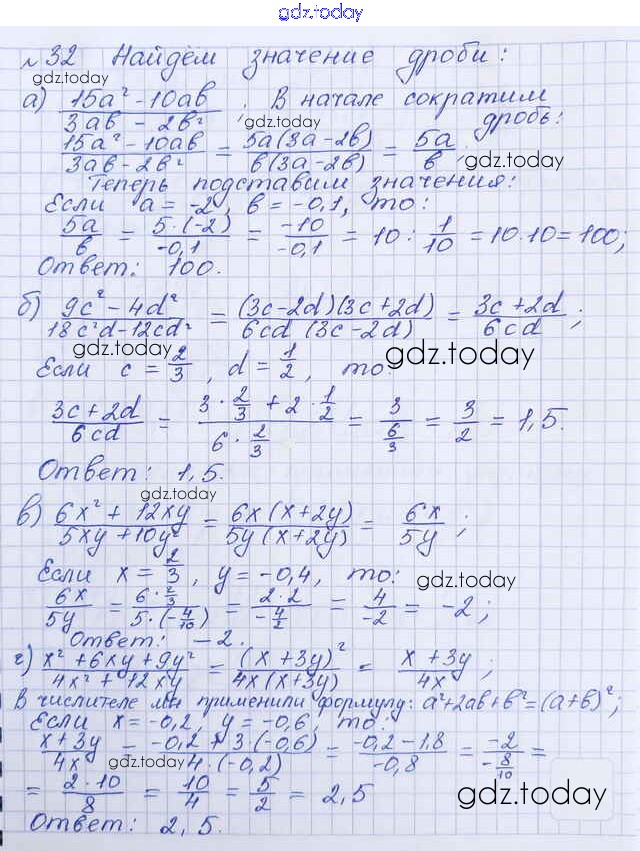 gdz.today
№32 Найдём значение дроби:
gdz.today
а) (15a² - 10ab)/(3ab - 2b²). В начале сократим
gdz.today
дробь:
(15a² - 10ab)/(3ab - 2b²) = 5a(3a - 2b)/b(3a - 2b) = 5a/b.
gdz.today
Теперь подставим значения:
Если a = -2, b = -0,1, то:
5a/b = 5·(-2)/-0,1 = -10/-0,1 = 10 : 1/10 = 10·10 = 100;
Ответ: 100.
б) (9c² - 4d²)/(18c²d - 12cd²) = (3c - 2d)(3c + 2d)/6cd (3c - 2d) = (3c + 2d)/6cd;
gdz.today
gdz.today
Если c = 2/3, d = 1/2, то:
(3c + 2d)/6cd = (3·2/3 + 2·1/2)/(6·2/3) = 3/(6/3) = 3/2 = 1,5.
Ответ: 1,5.
gdz.today
в) (6x² + 12xy)/(5xy + 10y²) = 6x(x + 2y)/5y(x + 2y) = 6x/5y;
Если x = 2/3, y = -0,4, то:
gdz.today
6x/5y = (6·2/3)/(5·(-4/10)) = 2·2/(-4/2) = 4/-2 = -2;
Ответ: -2.
г) (x² + 6xy + 9y²)/(4x² + 12xy) = (x + 3y)²/4x(x + 3y) = (x + 3y)/4x;
В числителе мы применили формулу: a² + 2ab + b² = (a + b)²;
Если x = -0,2, y = -0,6, то:
(x + 3y)/4x = (-0,2 + 3·(-0,6))/(4·(-0,2)) = (-0,2 - 1,8)/-0,8 = -2/(-8/10) =
gdz.today
= 2·10/8 = 10/4 = 5/2 = 2,5
gdz.today
Ответ: 2,5.